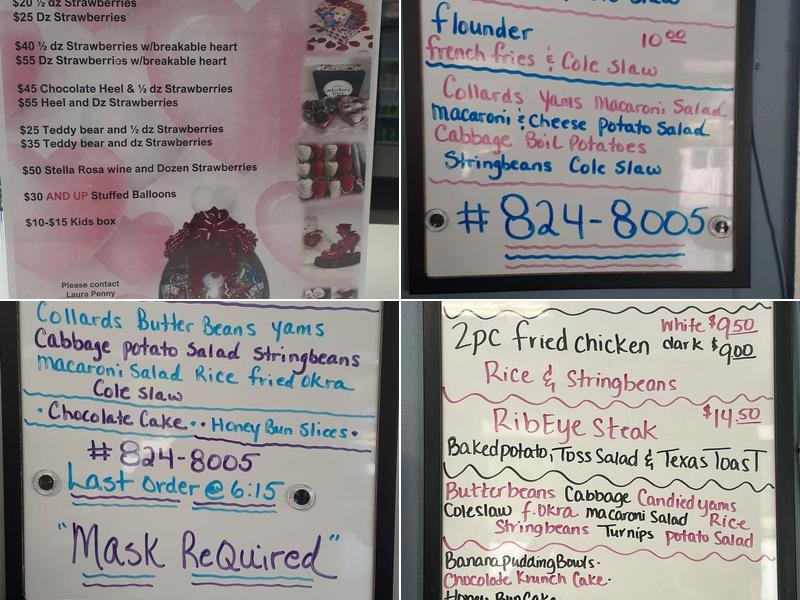 $20 ½ dz Strawberries
$25 Dz Strawberries
$40 ½ dz Strawberries w/breakable heart
$55 Dz Strawberries w/breakable heart
$45 Chocolate Heel & ½ dz Strawberries
$55 Heel and Dz Strawberries
$25 Teddy bear and ½ dz Strawberries
$35 Teddy bear and dz Strawberries
$50 Stella Rosa wine and Dozen Strawberries
$30 AND UP Stuffed Balloons
$10-$15 Kids box
Please contact
Laura Penny
flounder 10.00
french fries & Cole Slaw
Collards Yams Macaroni Salad
macaroni & Cheese Potato Salad
Cabbage Boil Potatoes
Stringbeans Cole Slaw
# 824-8005
Collards Butter Beans Yams
Cabbage potato Salad Stringbeans
macaroni Salad Rice fried Okra
Cole Slaw
· Chocolate Cake · · Honey Bun Slices ·
# 824-8005
Last Order @ 6:15
"Mask Required"
2pc fried chicken White $9.50
dark $9.00
Rice & Stringbeans
RibEye Steak $14.50
Baked potato, Toss Salad & Texas Toast
Butterbeans Cabbage Candied yams
Coleslaw f.Okra macaroni Salad Rice
Stringbeans Turnips potato Salad
Banana pudding Bowls·
Chocolate Krunch Cake·
Honey Bun Cake·